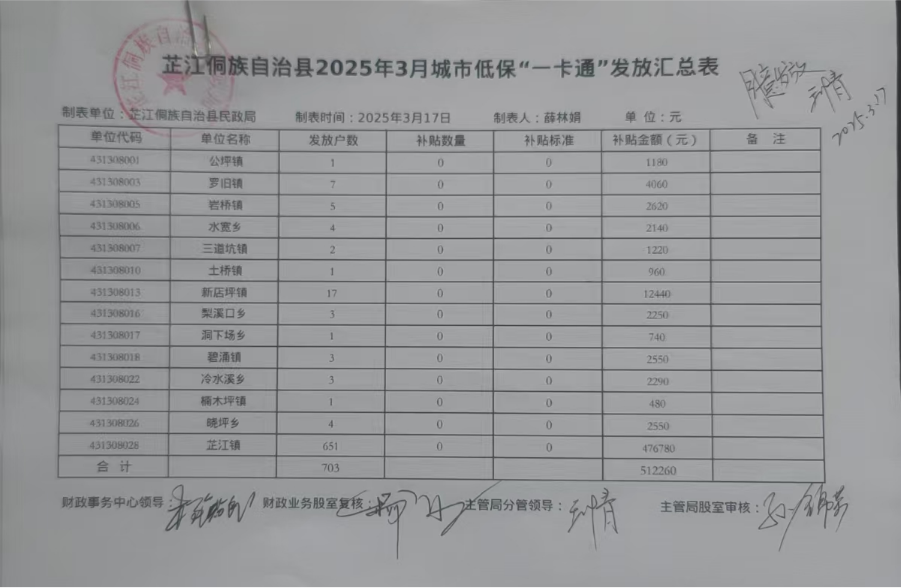 芷江侗族自治县2025年3月城市低保“一卡通”发放汇总表
制表单位：芷江侗族自治县民政局 制表时间：2025年3月17日 制表人：薛林娟 单 位：元
2025.3.17
单位代码 单位名称 发放户数 补贴数量 补贴标准 补贴金额（元） 备 注
431308001 公坪镇 1 0 0 1180
431308003 罗旧镇 7 0 0 4060
431308005 岩桥镇 5 0 0 2620
431308006 水宽乡 4 0 0 2140
431308007 三道坑镇 2 0 0 1220
431308010 土桥镇 1 0 0 960
431308013 新店坪镇 17 0 0 12440
431308016 梨溪口乡 3 0 0 2250
431308017 洞下场乡 1 0 0 740
431308018 碧涌镇 3 0 0 2550
431308022 冷水溪乡 3 0 0 2290
431308024 木坪镇 1 0 0 480
431308026 晓坪乡 4 0 0 2550
431308028 芷江镇 651 0 0 476780
合 计 703 512260
财政事务中心领导： 财政业务股室复核： 主管局分管领导： 主管局股室审核：